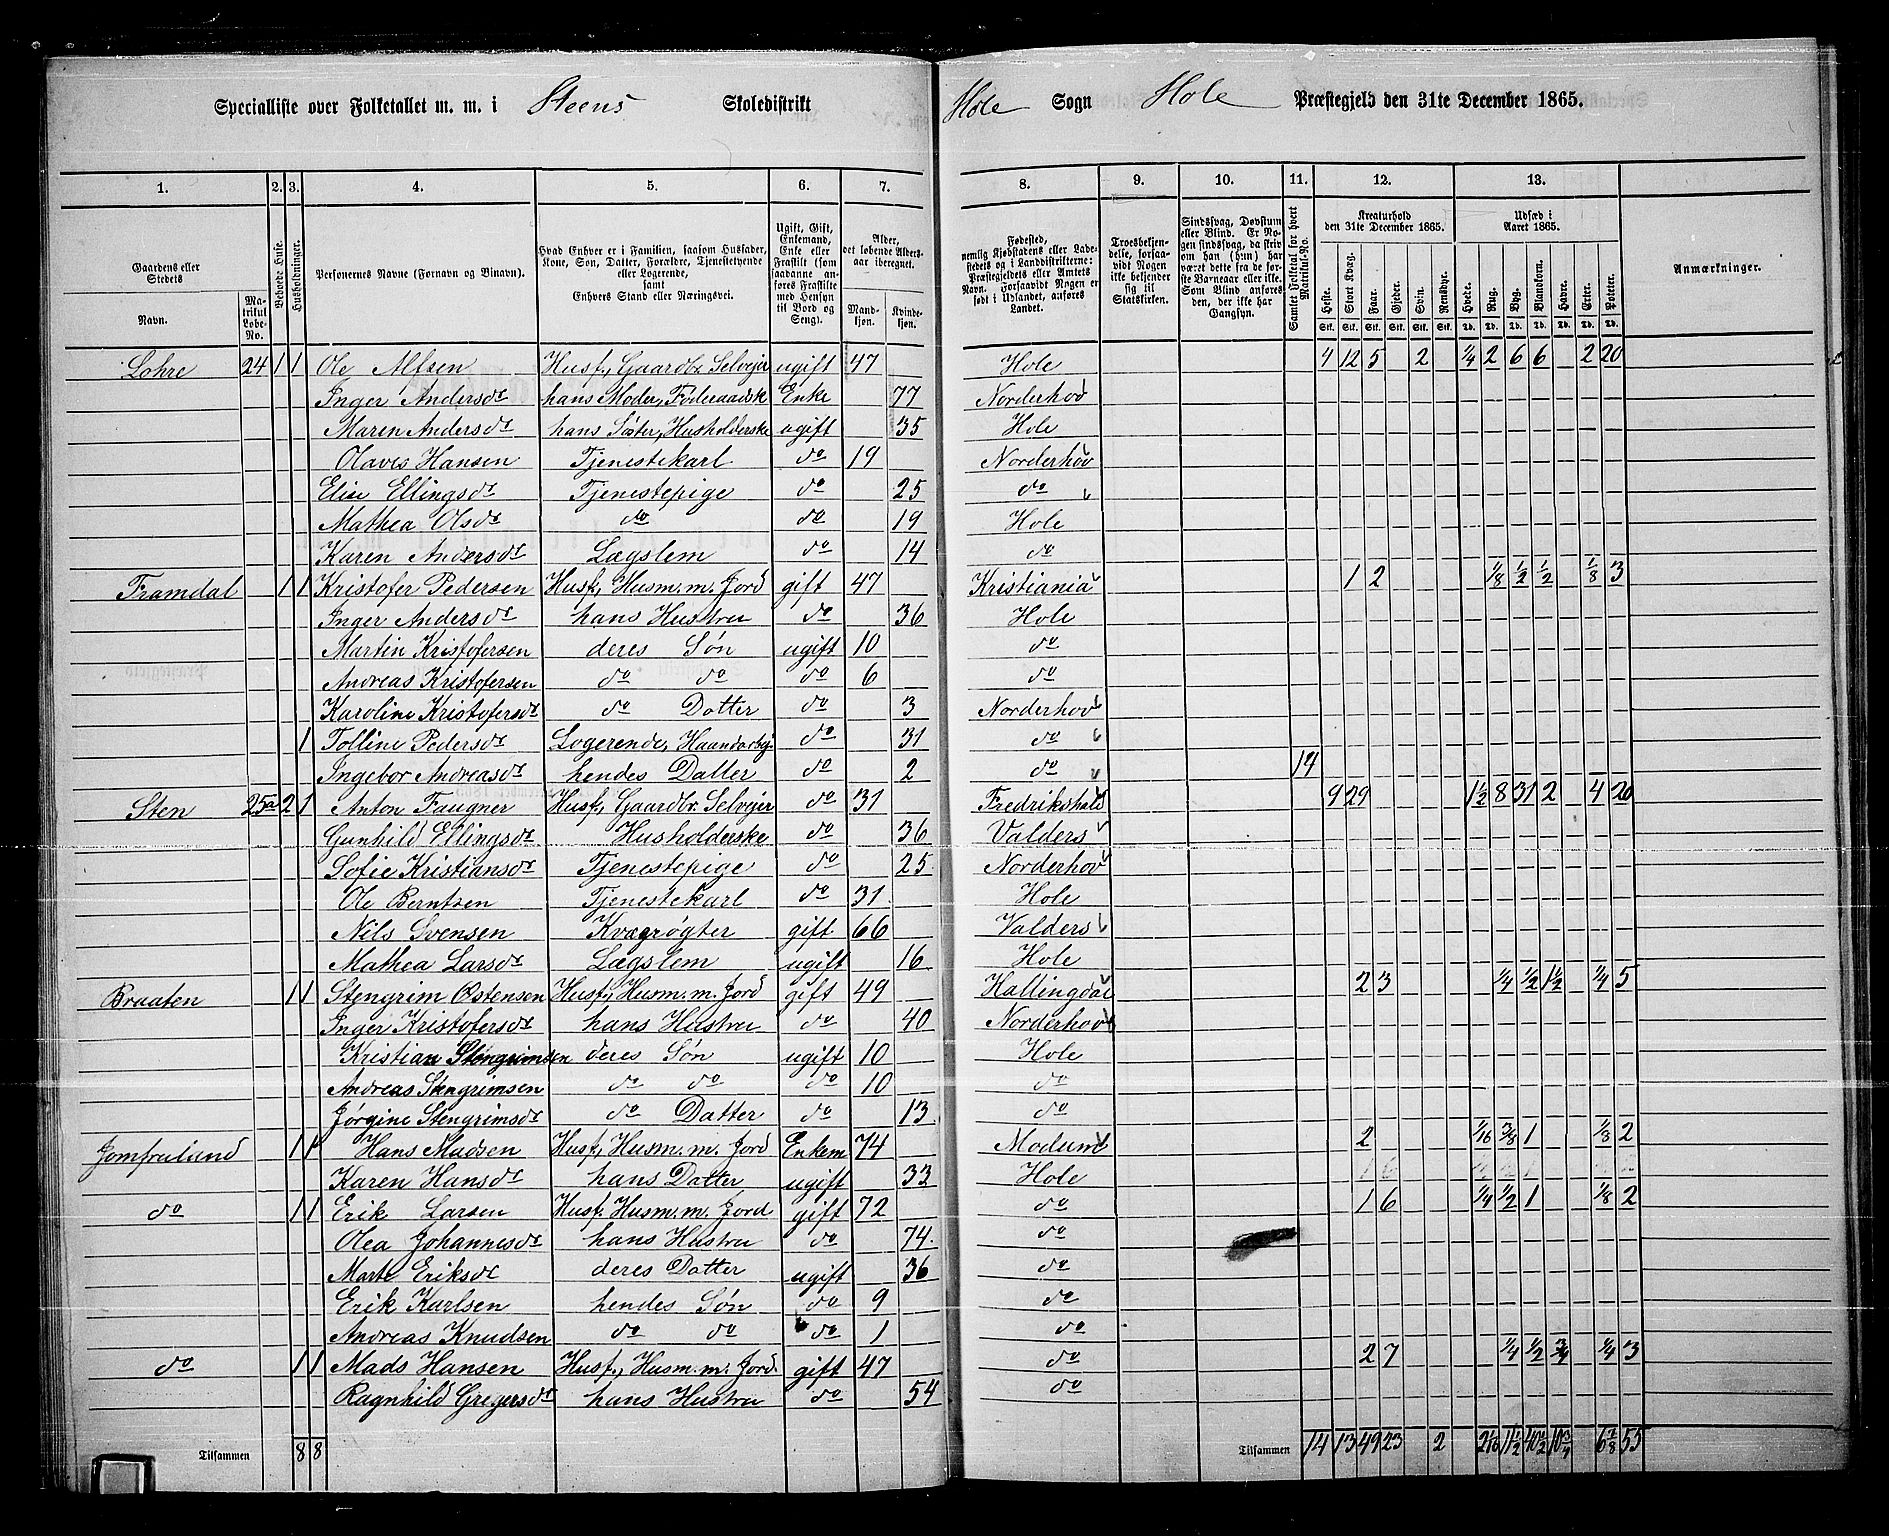 Specialliste over Folketallet m. m. i Steens Skoledistrikt Hole Sogn Hole Præstegjeld den 31te December 1865.
1. 2. 3. 4. 5. 6. 7. 8. 9. 10. 11. 12. 13.
Gaardens eller Stedets
Navn.
Matrikul Løbe-No.
Beboede Huse.
Husholdninger.
Personernes Navne (Fornavn og Binavn).
Hvad Enhver er i Familien, saasom Husfader, Kone, Søn, Datter, Forældre, Tjenestetyende eller Logerende, samt Enhvers Stand eller Næringsvei.
Ugift, Gift, Enkemand, Enke eller Fraskilt (som saadanne anføres Fraskilte med Hensyn til Bord og Seng).
Alder, det løbende Alders-aar iberegnet.
Mand-kjøn. Kvinde-kjøn.
Fødested, nemlig Kjøbstadens eller Ladestedets og i Landdistrikterne: Præstegjeldets eller Amtets Navn. Forsaavidt Nogen er født i Udlandet, anføres Landet.
Troesbekjendelse, forsaavidt Nogen ikke bekjender sig til Statskirken.
Sindssvag, Døvstum eller Blind. Er Nogen sindssvag, da skriv om han (hun) har været dette fra de første Barneaar eller ikke. Som Blind anføres den, der ikke har Gangsyn.
Samlet Folketal for hvert Matrikul-No.
Kreaturhold den 31te December 1865.
Heste. Stort Kvæg. Faar. Gjeder. Svin. Rensdyr.
Udsæd i Aaret 1865.
Hvede. Rug. Byg. Blandkorn. Havre. Erter. Poteter.
Anmærkninger.
Lohre 24 1 1 Ole Alfsen Husf, Gaardbr. Selvejer ugift 47 Hole 4 12 5 2 1/4 2 6 6 2 20
Inger Andersdr hans Moder, Føderaadsk Enke 77 Norderhov
Maren Andersdr hans Søster, Husholderske ugift 35 Hole
Olaves Hansen Tjenestekarl do 19 Norderhov
Elise Ellingsdr Tjenestepige do 25 do
Mathea Olsdr do do 19 Hole
Karen Andersdr Lægslem do 14 do
Framdal 1 1 Kristofer Pedersen Husf, Husm. m. Jord gift 47 Kristiania 1 2 1/8 1/2 1/2 1/8 3
Inger Andersdr hans Hustru do 36 Hole
Martin Kristofersen deres Søn ugift 10 do
Andreas Kristofersen do do do 6 do
Karoline Kristofersdr do Datter do 3 Norderhov
1 Tolline Pedersdr Logerende, Haandarbej do 31 do
Ingebor Andreasdr hendes Datter do 2 do 14
Sten 25a 2 1 Anton Faugner Husf, Gaardbr. Selvejer do 31 Fredrikshald 9 29 1 1/2 8 31 2 4 20
Gunhild Ellingsdr Husholderske do 36 Valders
Sofie Kristiansdr Tjenestepige do 25 Norderhov
Ole Berntsen Tjenestekarl do 31 Hole
Nils Svensen Kvægrøgter gift 66 Valders
Mathea Larsdr Lægslem ugift 16 Hole
Braaten 1 1 Stengrim Østensen Husf, Husm. m. Jord gift 49 Hallingdal 2 3 1/4 1/2 1 1/2 1/4 5
Inger Kristofersdr hans Hustru do 40 Norderhov
Kristian Stengrimsen deres Søn ugift 10 Hole
Andreas Stengrimsen do do do 10 do
Jørgine Stengrimsdr do Datter do 13 do
Jomfrulund 1 1 Hans Madsen Husf, Husm. m. Jord Enkem 74 Modum 2 1/16 3/8 1 1/8 2
Karen Hansdr hans Datter ugift 33 Hole
do 1 1 Erik Larsen Husf, Husm. m. Jord gift 72 do 1 6 1/4 1/2 1 1/8 2
Olea Johannesdr hans Hustru do 74 do
Marte Eriksdr deres Datter ugift 36 do
Erik Karlsen hendes Søn do 9 do
Andreas Knudsen do do do 1 do
do 1 1 Mads Hansen Husf, Husm. m. Jord gift 47 do 2 7 1/4 1/2 3/4 1/4 3
Ragnhild Gregersdr hans Hustru do 54 do
Tilsammen 8 8 Tilsammen 14 13 49 23 2 11 1/2 40 1/2 10 3/4 6 7/8 55